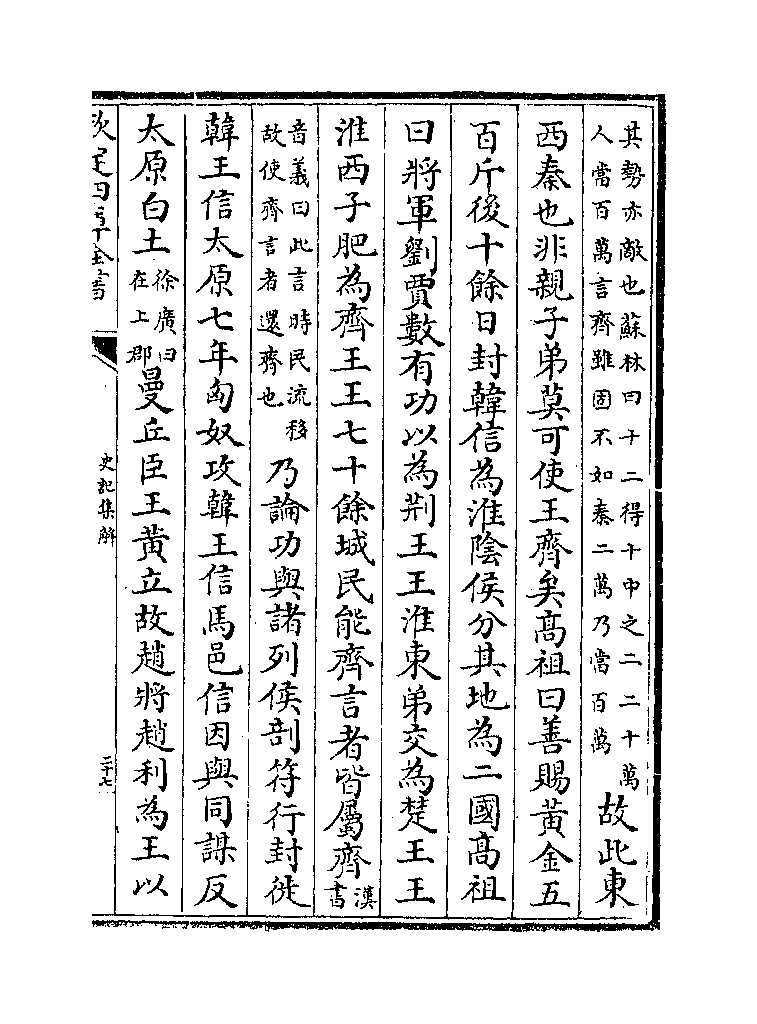 其勢亦敵也蘇林曰十二得十中之二二十萬
人當百萬言齊雖固不如秦二萬乃當百萬
故此東
西秦也非親子弟莫可使王齊矣髙祖曰善賜黄金五
百斤後十餘日封韓信為淮隂侯分其地為二國髙祖
曰將軍劉賈數有功以為荆王王淮東弟交為楚王王
淮西子肥為齊王王七十餘城民能齊言者皆屬齊
漢
書
音義曰此言時民流移
故使齊言者還齊也
乃論功與諸列侯剖符行封徙
韓王信太原七年匈奴攻韓王信馬邑信因與同謀反
太原白土
徐廣曰
在上郡
曼丘臣王黄立故趙將趙利為王以
欽定四庫全書
史記集解
二十七